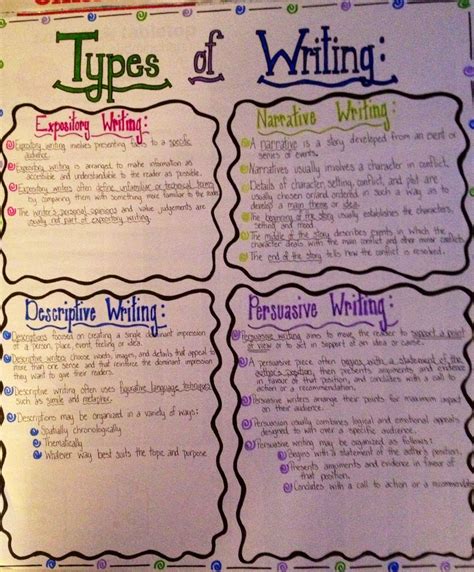 Types of Writing:
Expository Writing:
Expository writing involves presenting to a specific
audience.
Expository writing is arranged to make information as
accessible and understandable to the reader as possible.
Expository writers often define unfamiliar or technical terms
by comparing them with something more familiar to the reader.
The writer's personal opinions and value judgements are
usually not part of expository writing.
Narrative Writing:
A narrative is a story developed from an event or
series of events.
Narratives usually involve a character in conflict.
Details of character, setting, conflict, and plot are
usually chosen and ordered in such a way as to
develop a main theme or idea.
The beginning of the story usually establishes the characters,
setting and mood.
The middle of the story describes events in which the
character deals with the main conflict and other minor conflicts.
The end of the story tells how the conflict is resolved.
Descriptive Writing:
Descriptions focus on creating a single dominant impression
of a person, place, event, feeling or idea.
Descriptive writers choose words, images, and details that appeal to
more than one sense and that reinforce the dominant impression
they want to give their reader.
Descriptive writing often uses figurative language techniques
such as simile and metaphor.
Descriptions may be organized in a variety of ways:
Spatially chronologically
Thematically
Whatever way best suits the topic and purpose
Persuasive Writing:
Persuasive writing aims to move the reader to support a point
of view or to act in support of an idea or cause.
A persuasive piece often begins with a statement of the
author's position, then presents arguments and evidence
in favour of that position, and concludes with a call for
action or a recommendation.
Persuasive writers arrange their points for maximum impact
on their audience.
Persuasion usually combines logical and emotional appeals
designed to win over a specific audience.
Persuasive writing may be organized as follows:
Begins with a statement of the author's position.
Presents arguments and evidence in favour of
that position.
Concludes with a call to action or a